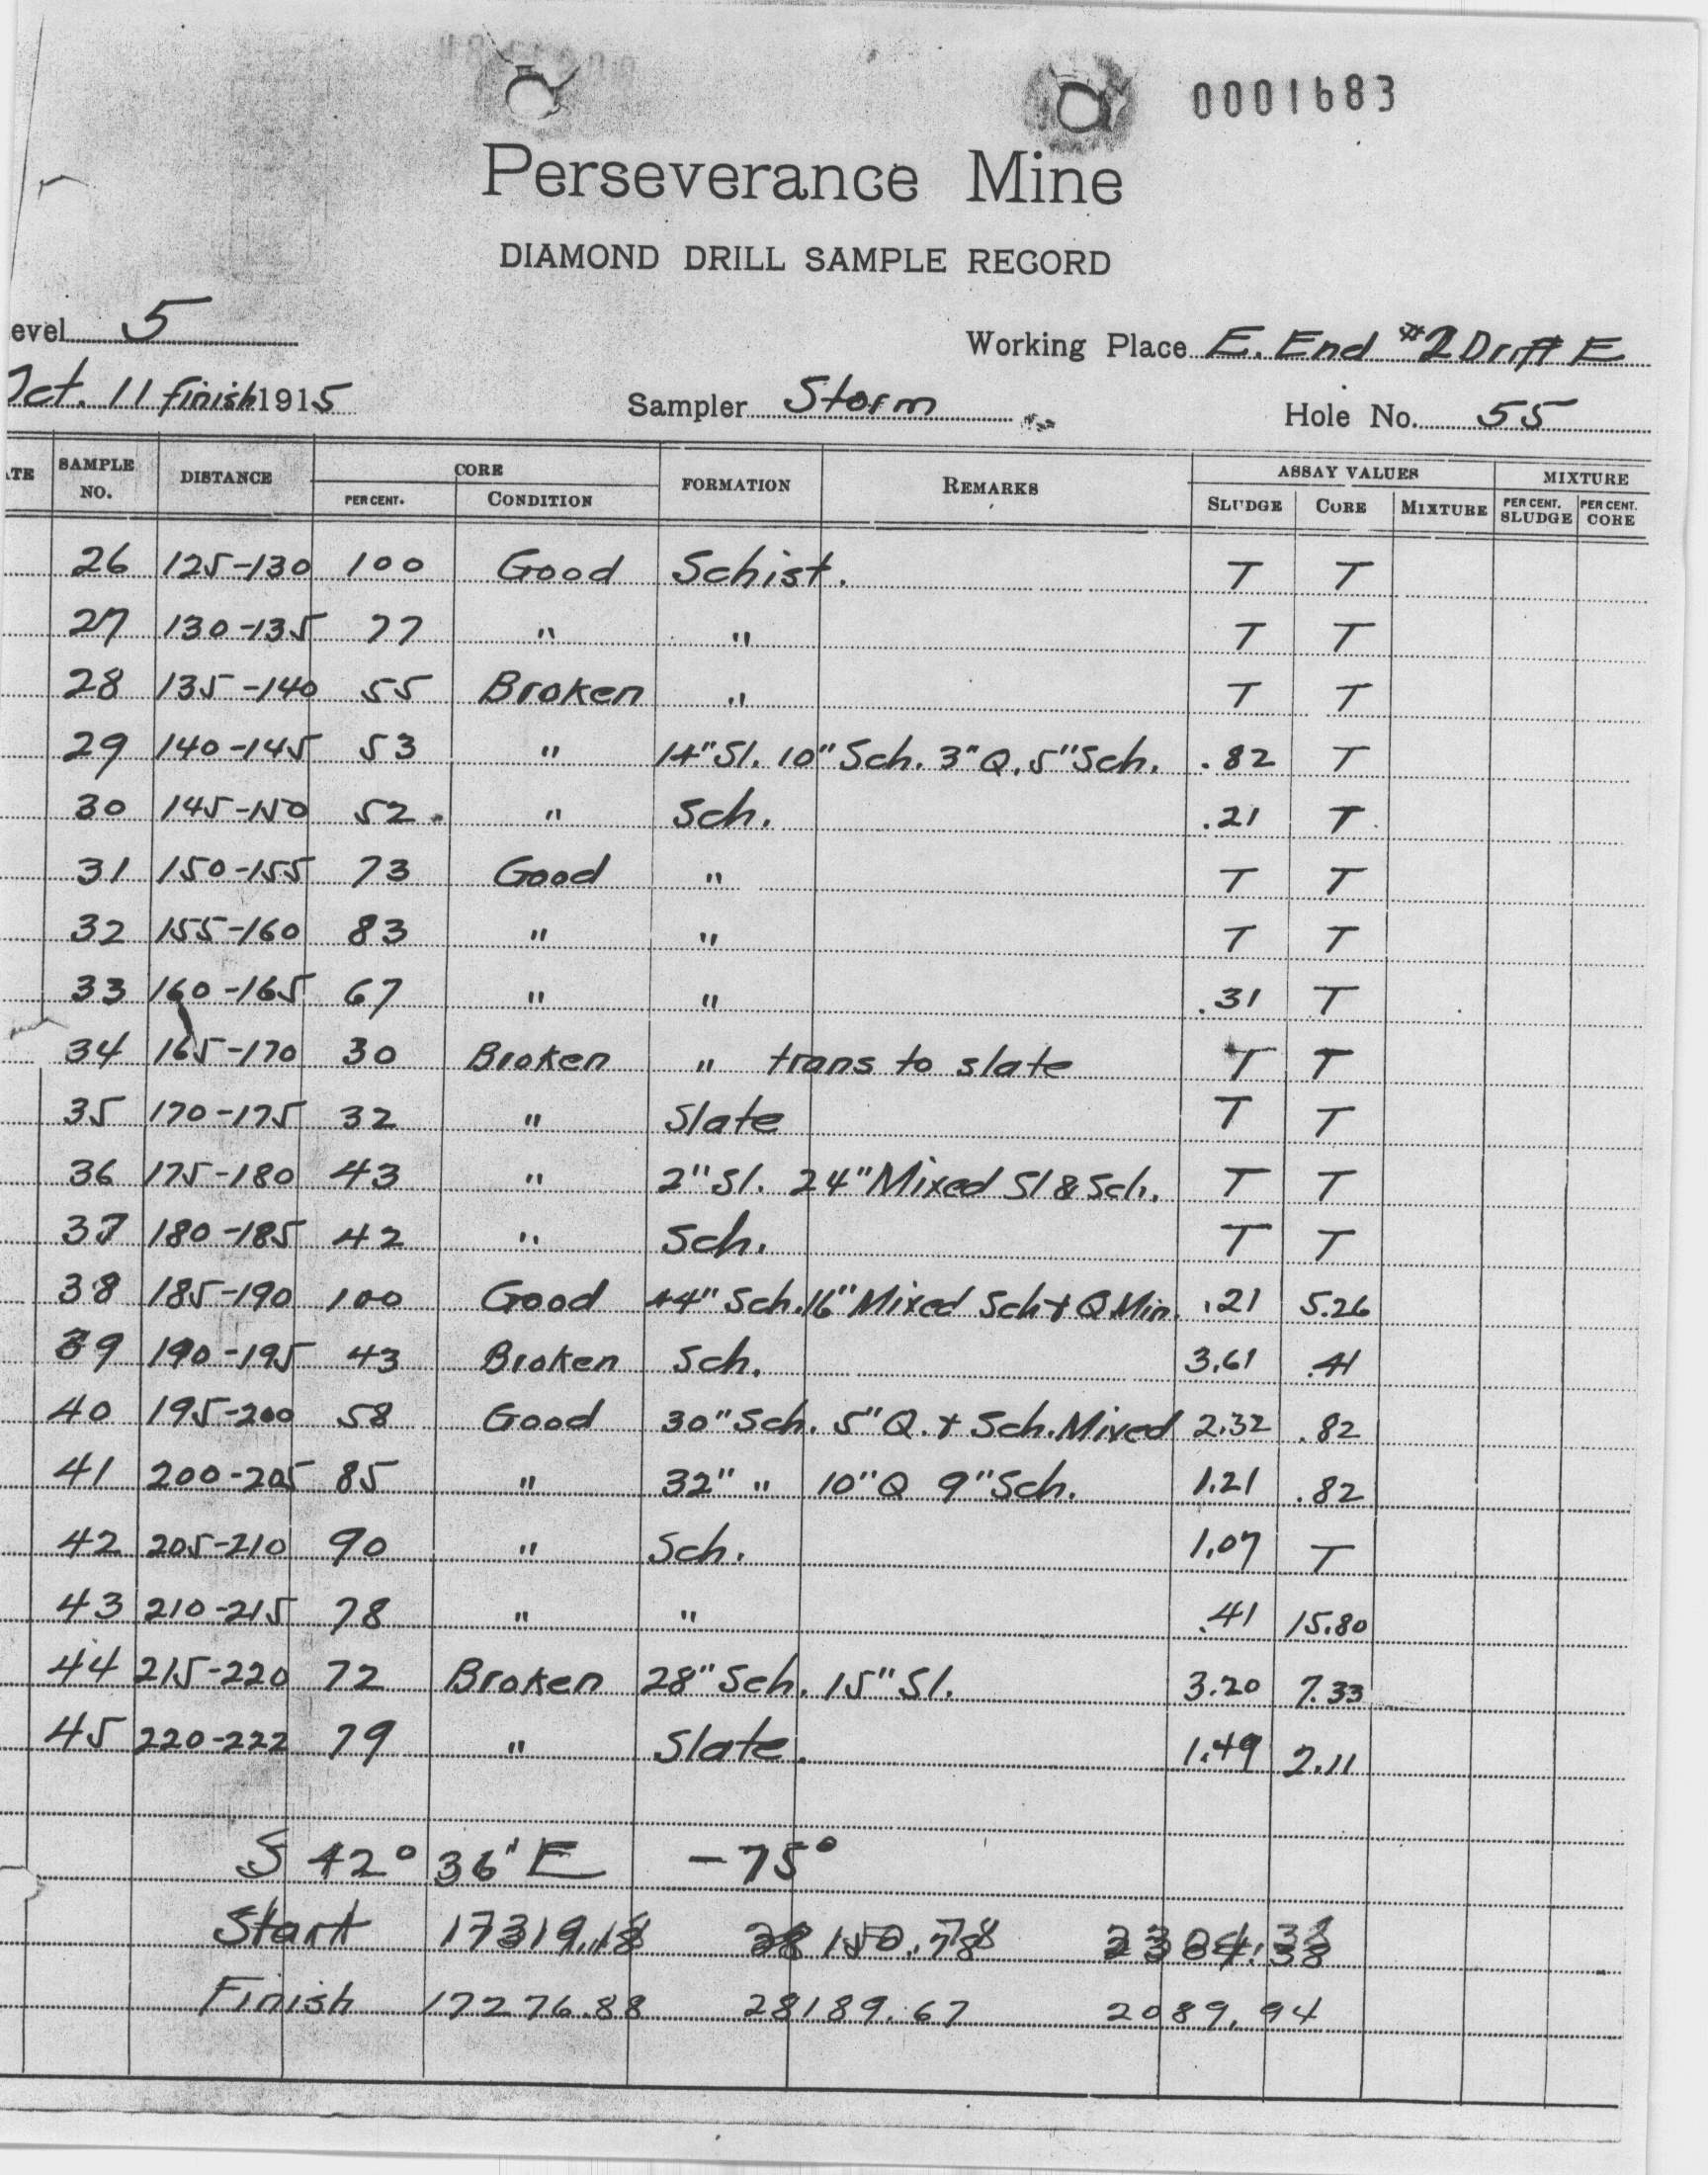 0001683
Perseverance Mine
DIAMOND DRILL SAMPLE RECORD
evel 5 Working Place E. End #2 Drift E
Oct. 11 finish 1915 Sampler Storm Hole No. 55
ATE SAMPLE NO. DISTANCE CORE PER CENT. CONDITION FORMATION REMARKS ASSAY VALUES SLUDGE CORE MIXTURE MIXTURE PER CENT. SLUDGE PER CENT. CORE
26 125-130 100 Good Schist. T T
27 130-135 77 " " T T
28 135-140 55 Broken " T T
29 140-145 53 " 14" Sl. 10" Sch. 3" Q. 5" Sch. .82 T
30 145-150 52 " Sch. .21 T
31 150-155 73 Good " T T
32 155-160 83 " " T T
33 160-165 67 " " .31 T
34 165-170 30 Broken " trans to slate T T
35 170-175 32 " Slate T T
36 175-180 43 " 2" Sl. 24" Mixed Sl & Sch. T T
37 180-185 42 " Sch. T T
38 185-190 100 Good 44" Sch. 16" Mixed Sch + Q Min. .21 5.26
39 190-195 43 Broken Sch. 3.61 .41
40 195-200 58 Good 30" Sch. 5" Q. + Sch. Mixed 2.32 .82
41 200-205 85 " 32" " 10" Q 9" Sch. 1.21 .82
42 205-210 90 " Sch. 1.07 T
43 210-215 78 " " .41 15.80
44 215-220 72 Broken 28" Sch. 15" Sl. 3.20 7.33
45 220-222 79 " Slate. 1.49 2.11
S 42° 36' E -75°
Start 17319.18 28150.78 2304.38
Finish 17276.88 28189.67 2089.94